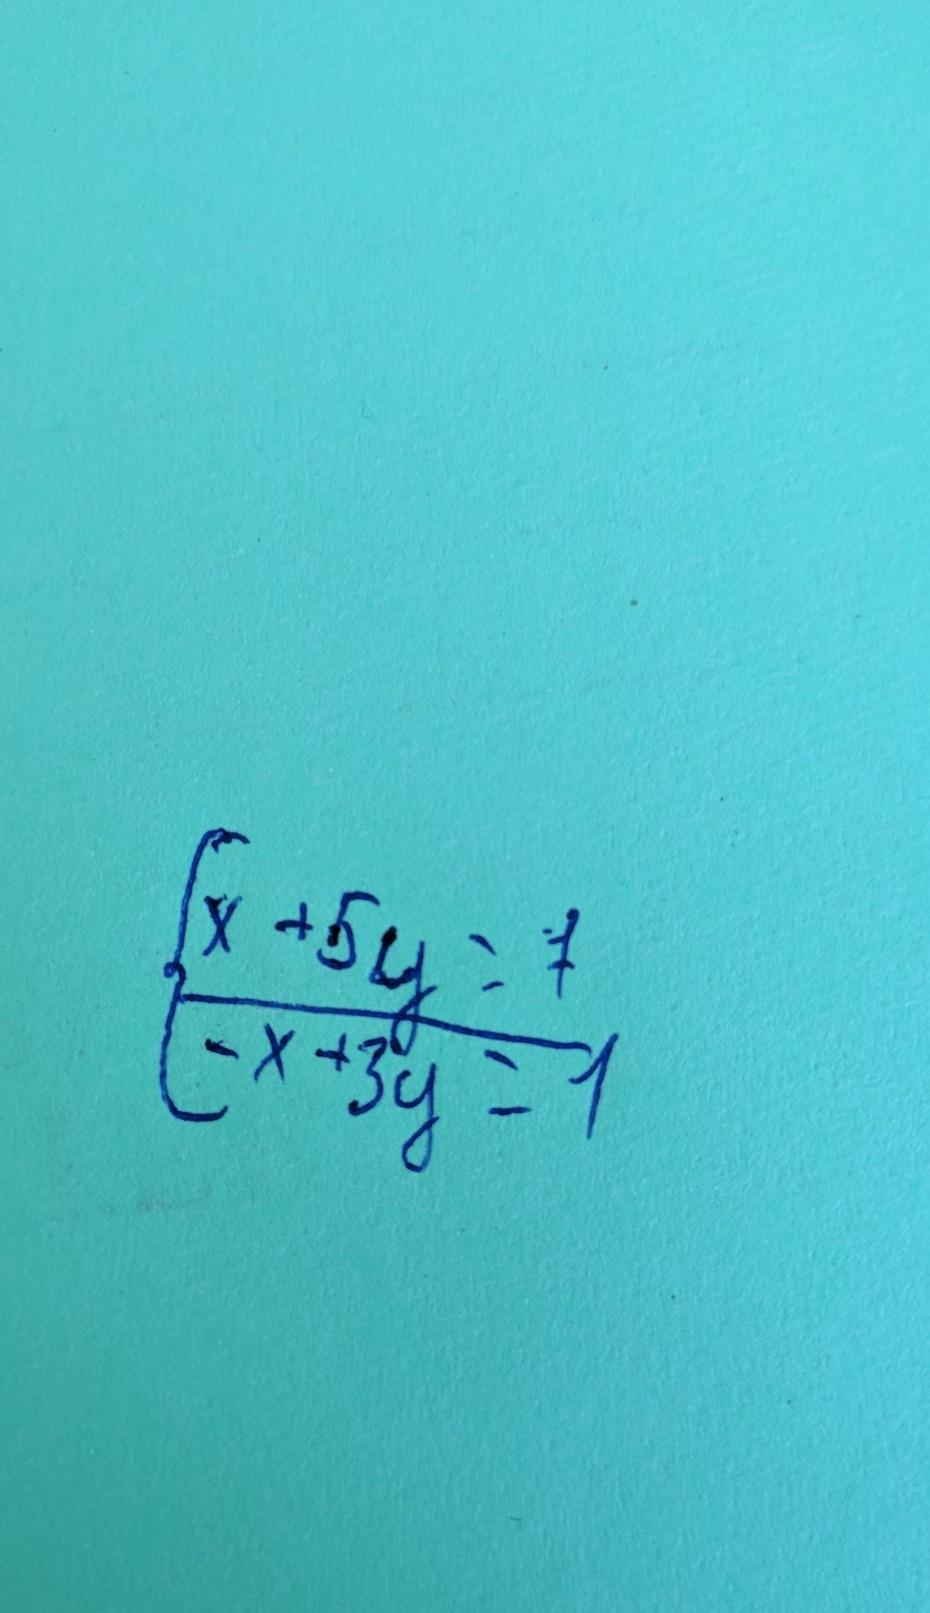 x + 5y = 7
- x + 3y = 1